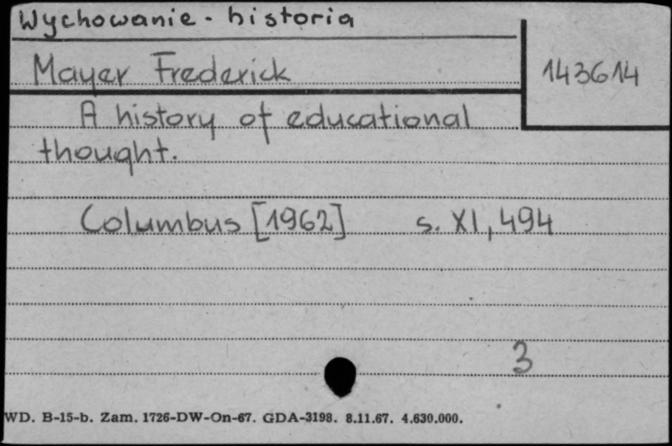 Wychowanie - historia
Mayer Frederick
143614
A history of educational
thought.
Columbus [1962] s. XI, 494
3
WD. B-15-b. Zam. 1726-DW-On-67. GDA-3198. 8.11.67. 4.630.000.